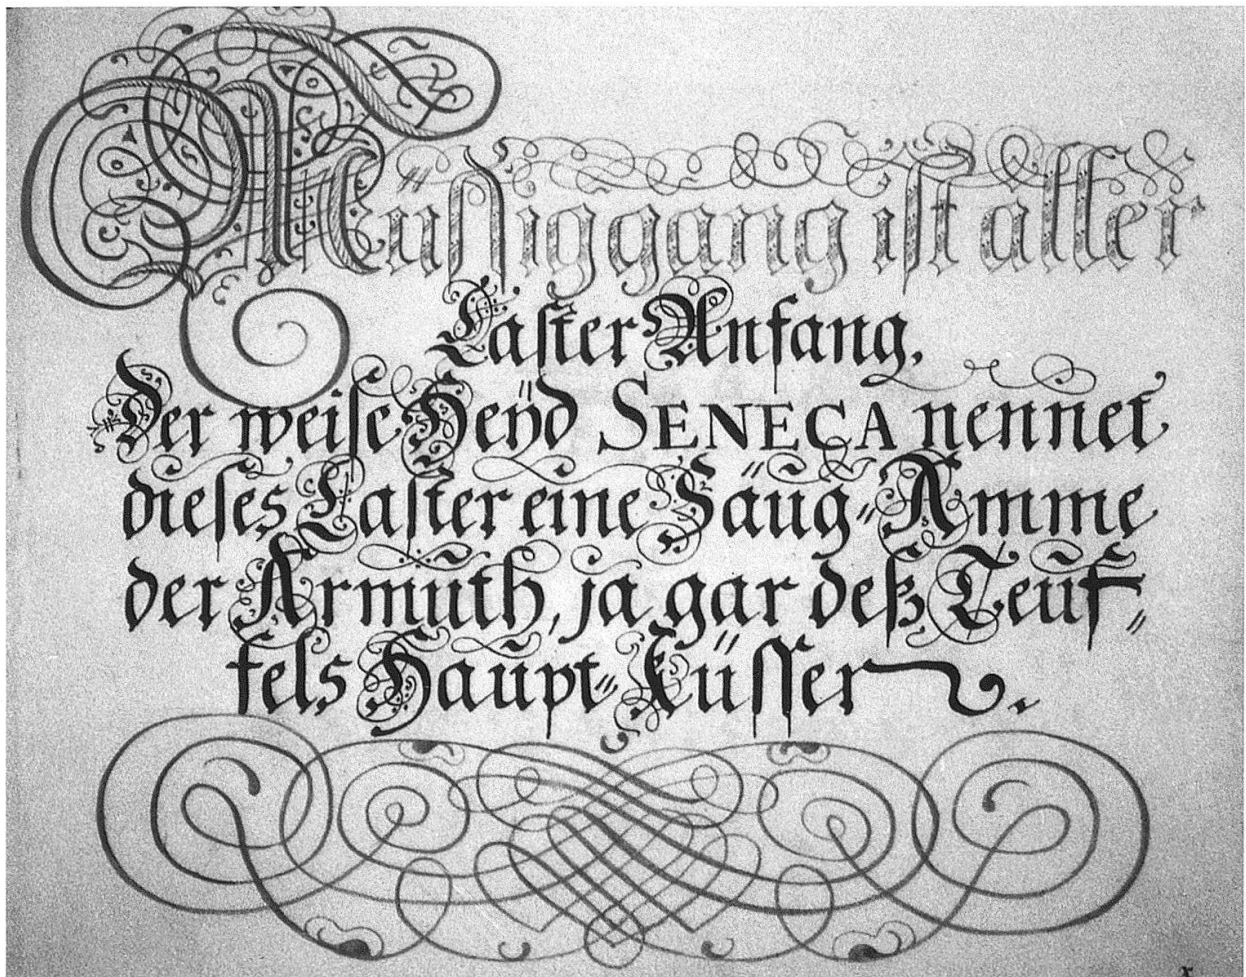 Müßiggang ist aller
Laster Anfang.
Der weise Heÿd SENECA nennet
dieses Laster eine Säug-Amme
der Armuth, ja gar deß Teuf-
fels Haupt-Küsser.